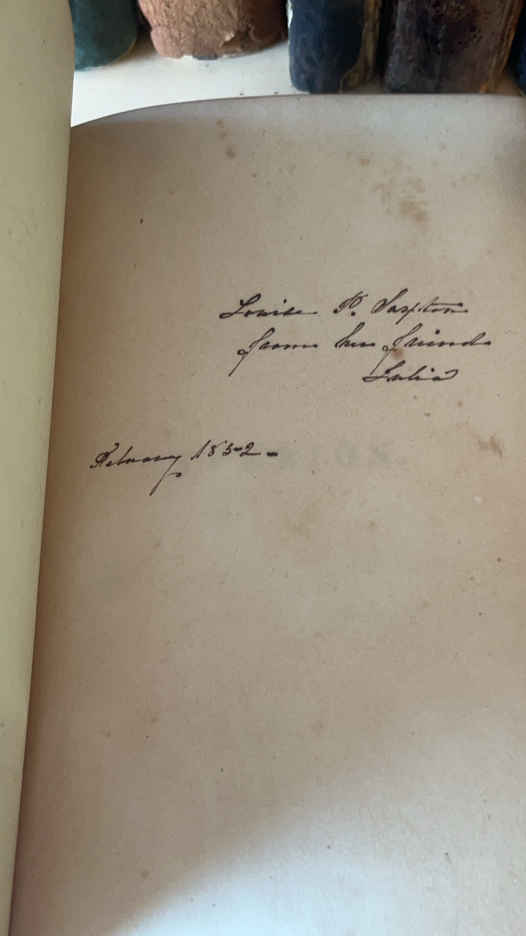 Louise P. Saxton
from her friend
Julia
February 1852.